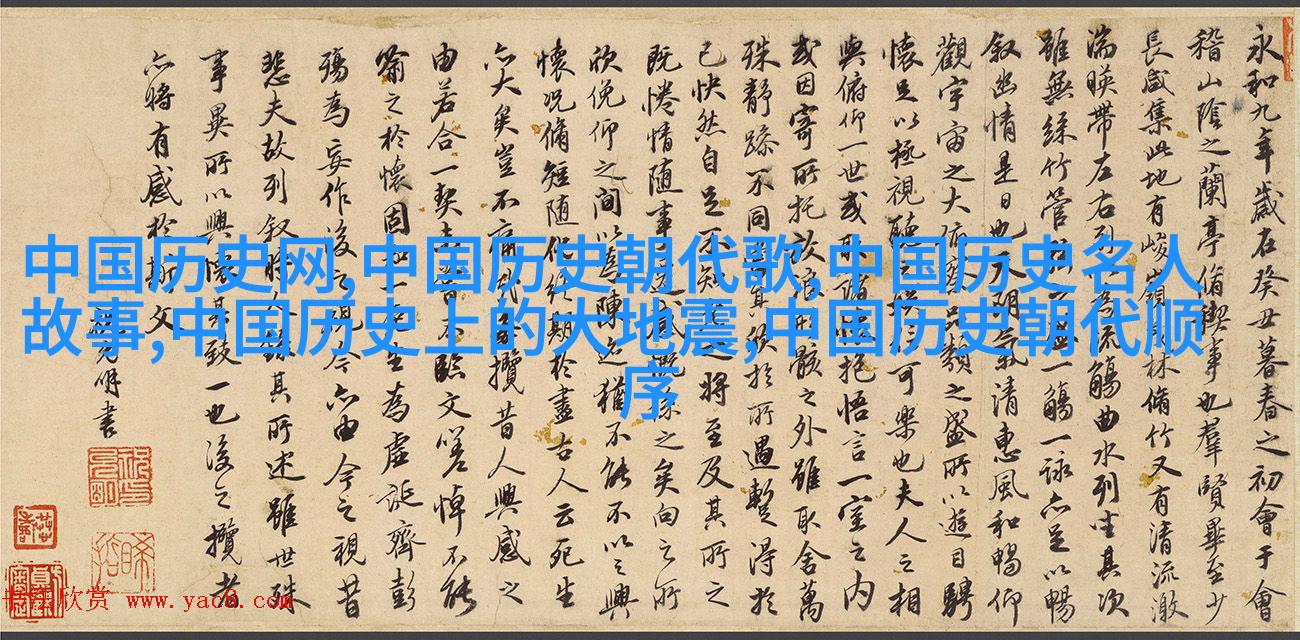 中国历史网,中国历史朝代歌,中国历史名人
故事,中国历史上的大地震,中国历史朝代顺
序
永和九年歲在癸丑暮春之初會于會
稽山陰之蘭亭脩禊事也羣賢畢至少
長咸集此地有峻嶺林脩竹又有清流激
湍暎帶左右列以為流觴曲水列坐其次
雖無絲竹管一觴一詠亦足以暢
叙幽情是日也天朗氣清惠風和暢仰
觀宇宙之大俯察品類之盛所以遊目騁
懷足以極視聽之可樂也夫人之相
與俯仰一世或取諸懷抱悟言一室之內
或因寄所托放浪形骸之外雖取舍萬
殊靜躁不同其欣於所遇蹔得於
己快然自足不知將至及其所之
既惓情随事遷感慨係之矣向之所
欣俛仰之間以為陳迹猶不能不以之興
懷况脩短随化終期於盡古人云死生
亦大矣豈不痛哉每攬昔人興感之
由若合一契未嘗不臨文嗟悼不能
喻之於懷固知一死生為虛誕齊彭
殤為妄作後之視今亦由今之視昔
悲夫故列叙時人錄其所述雖世殊
事異所以興懷其致一也後之攬者
亦將有感於斯文
明書
欣赏 www.yac8.com